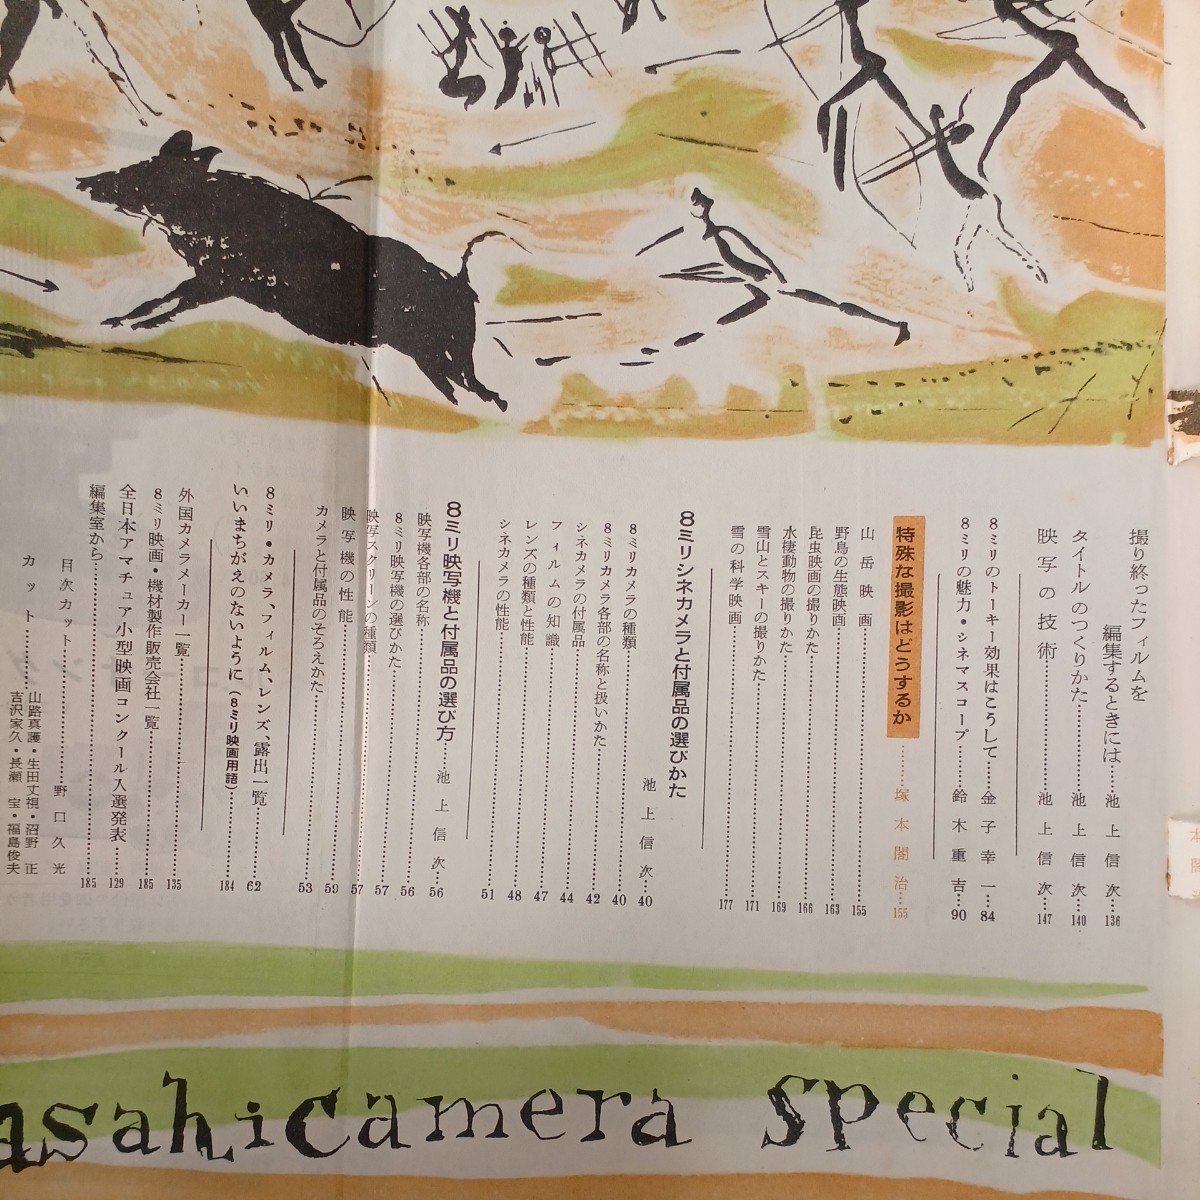 撮り終ったフィルムを
編集するときには…池上信次…136
タイトルのつくりかた…池上信次…140
映写の技術…池上信次…147
8ミリのトーキー効果はこうして…金子幸一…84
8ミリの魅力・シネマスコープ…鈴木重吉…90
特殊な撮影はどうするか………塚本閤治…155
山岳映画…155
野鳥の生態映画…163
昆虫映画の撮りかた…166
水棲動物の撮りかた…169
雪山とスキーの撮りかた…171
雪の科学映画…177
8ミリシネカメラと付属品の選びかた
池上信次…40
8ミリカメラの種類…40
8ミリカメラ各部の名称と扱いかた…42
シネカメラの付属品…44
フィルムの知識…47
レンズの種類と性能…48
シネカメラの性能…51
8ミリ映写機と付属品の選び方…池上信次…56
映写機各部の名称…56
8ミリ映写機の選びかた…57
映写スクリーンの種類…57
映写機の性能…59
カメラと付属品のそろえかた…53
8ミリ・カメラ、フィルム、レンズ、露出一覧…62
いいまちがえのないように(8ミリ映画用語)…184
外国カメラメーカー一覧…135
8ミリ映画・機材製作販売会社一覧…185
全日本アマチュア小型映画コンクール入選発表…129
編集室から…185
目次カット…野口久光
カット…山路真護・生田丈視・沼野正
吉沢家久・長瀬宝・福島俊夫
本
閤
asahicamera special